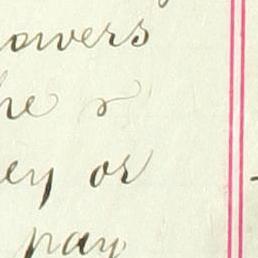 owers
he &
ey or
pay